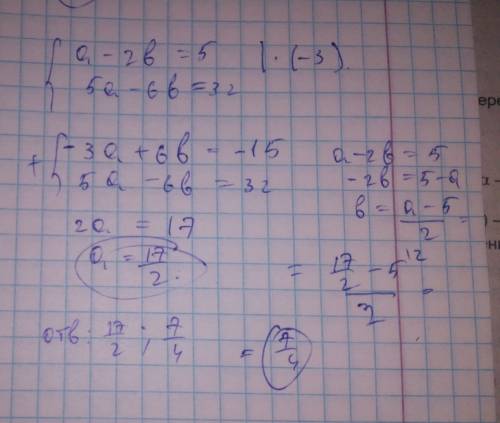 a - 2b = 5 | · (-3).
5a - 6b = 32
+ -3a + 6b = -15
5a - 6b = 32
2a = 17
a = 17/2.
a - 2b = 5
-2b = 5 - a
b = (a - 5)/2 =
= (17/2 - 5 \2)/2 =
= 7/4
отв: 17/2 ; 7/4